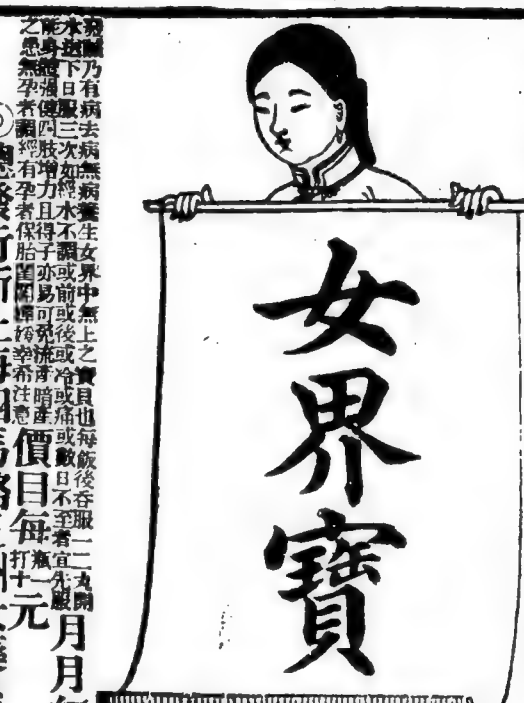 女界寶
乃有病去病無病養生女界中無上之寶貝也每飯後吞服一二丸開
水送下日服三次如經水不調或前或後或冷或痛或數日不至者宜先服
月月
能身體強健四肢增力且得子亦易可免流產暗產
之患無孕者調經有孕者保胎幸希注意
價目每瓶一打十元